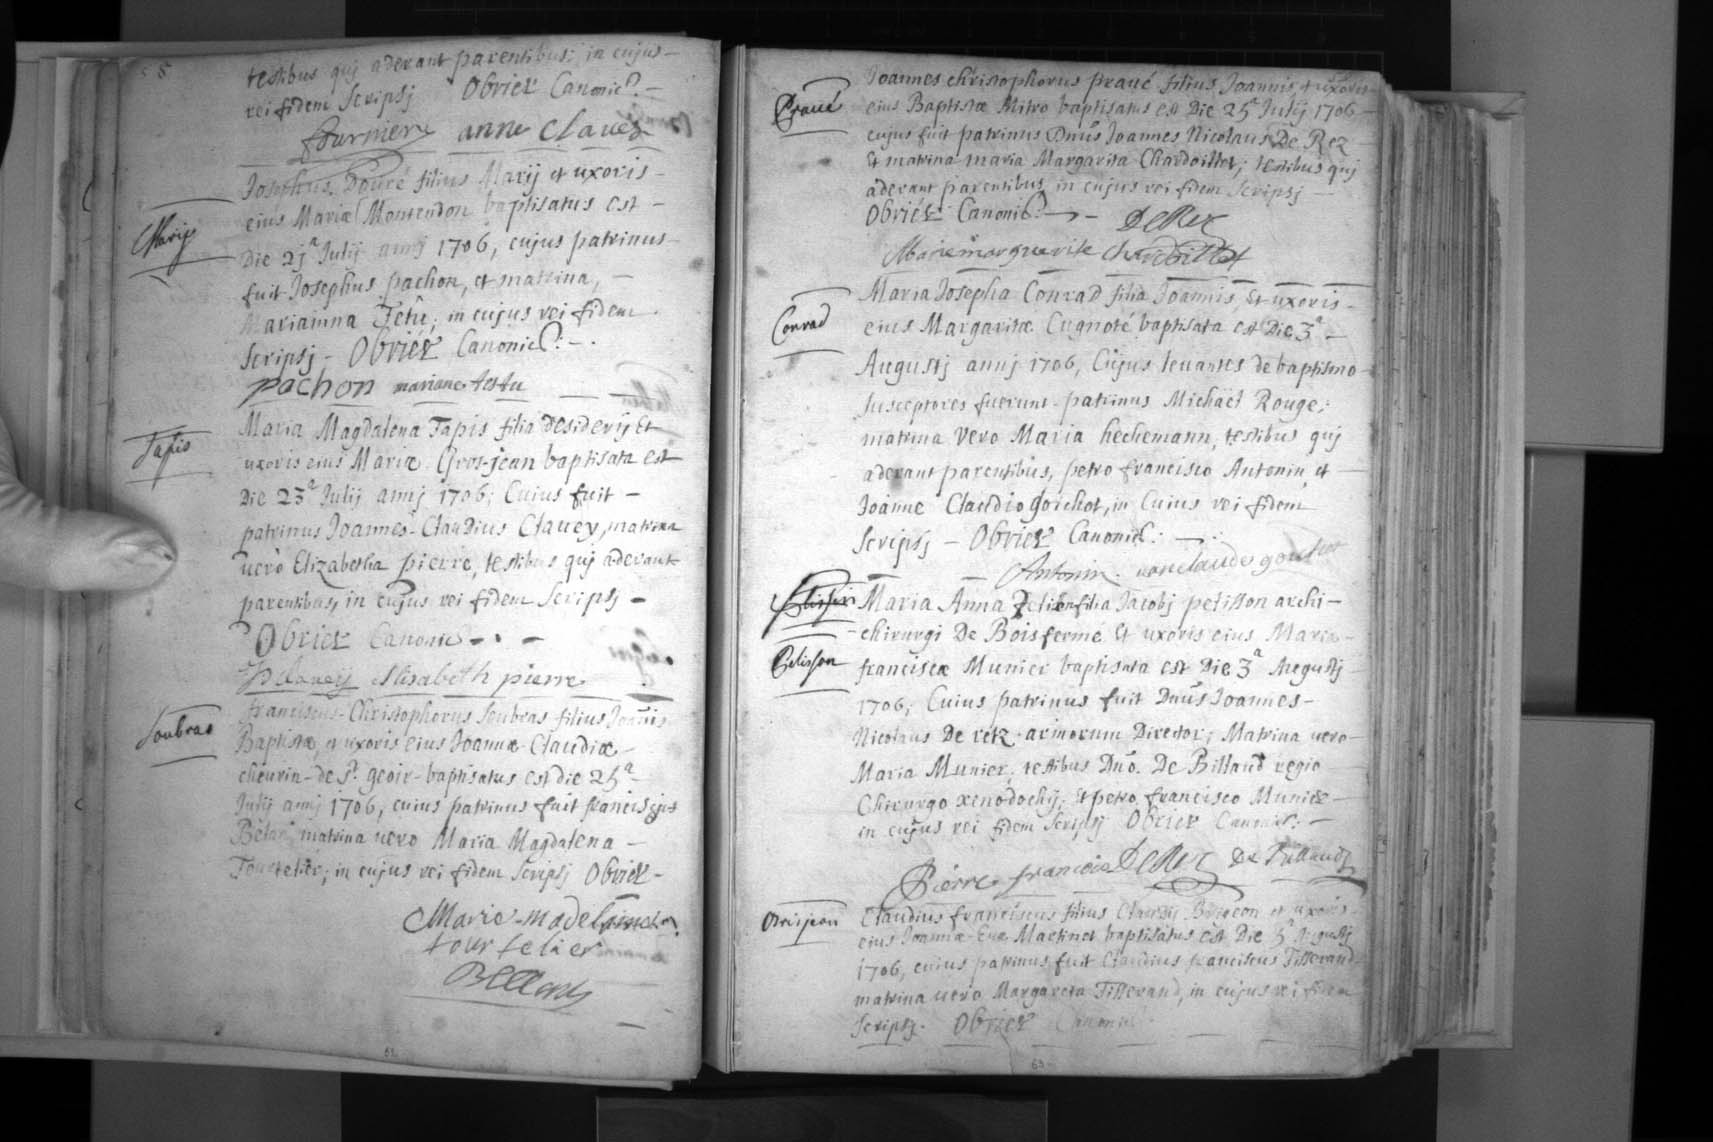 testibus quj aderant parentibus; in cujus
rei fidem Scripsj Obriet Canonic?.
anne Clavez
Josephus Douré filius Marij et uxoris
Marij
eius Mariæ Montendon baptisatus est
Die 21ª Julij annj 1706, cujus patrinus
fuit Josephus pachon, et matrina,
Marianna Tétû; in cujus rei fidem
Scripsj - Obriet Canonic?.
pachon mariane testu
Maria Magdalena Tapis filia desiderij Et
Tapis
uxoris eius Mariæ Gros-jean baptisata est
Die 23ª Julij annj 1706; Cuius fuit
patrinus Joannes-Claudius Clavey, matrina
verò Elizabetha pierre, testibus quj aderant
parentibus, in cujus rei fidem Scripsj
Obriet Canonic
Clavey Elisabeth pierre
franciscus-Christophorus Soubras filius Joannis
Soubras
Baptistæ, et uxoris eius Joannæ-Claudiæ
chevrin-de St. geoir-baptisatus est die 25ª
Julij annj 1706, cuius patrinus fuit franciscus
matrina vero Maria Magdalena
Tourtelier; in cujus rei fidem Scripsj Obriet
Marie-madelaine
tourtelier
62
Joannes christophorus pravé filius Joannis, et uxoris
Pravé
eius Baptistæ Mitro baptisatus est Die 25ª Julij 1706
cujus fuit patrinus Dnûs Joannes Nicolaus De Rez
Et matrina maria Margarita Chardoillet, testibus quj
aderant parentibus in cujus rei fidem Scripsj
Obriét Canonic? DeRez
Marie marguerite Chardoillet
Maria Josepha Conrad filia Joannis, Et uxoris
Conrad
eius Margaritæ Cugnoté baptisata est Die 3ª
Augustj annj 1706, Cujus levantes de baptismo
Susceptores fuerunt patrinus Michaël Rouge;
matrina vero Maria hechemann, testibus quj
aderant parentibus, petro francisco Antonin, et
Joanne Claudio gorchot, in Cuius rei fidem
Scripsj - Obriet Canonic?.
Antonin
Maria Anna filia Jacobj pelisson archi-
chirurgi De Boisfermé Et uxoris eius Mariæ
Pelisson
franciscæ Munier baptisata est Die 3ª Augustj
1706; Cuius patrinus fuit Dnûs Joannes-
Nicolaus De retz armorum Director; Matrina vero
Maria Munier, testibus Dno. De Billaud regio
Chirurgo xenodochij; Et petro francisco Munier
in cujus rei fidem Scripsj Obriet Canonic?.
Pierre francois DeRez De Billaud
Claudius franciscus filius Claudij et uxoris
eius Joannæ-Evæ Martinet baptisatus est Die 5ª Augustj
1706, cuius patrinus fuit Claudius franciscus Tisserand
matrina vero Margareta Tisserand, in cujus rei fidem
Scripsj. Obriet Canonic
63